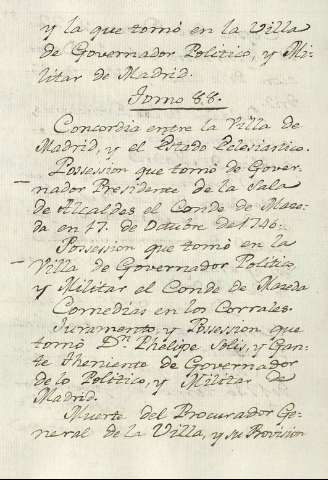 y la que tomó en la Villa
de Governador Politico, y Mi-
litar de Madrid.
Tomo 88.
Concordia entre la Villa de
Madrid, y el Estado Eclesiastico.
Possession que tomó de Gover-
nador Presidente de la Sala
de Alcaldes el Conde de Mace-
da en 17. de Octubre de 1746.
Possession que tomó en la
Villa de Governador Politico,
y Militar el Conde de Mazeda.
Comedias en los Corrales.
Juramento, y Posesion que
tomó Dn. Phelipe Solis, y Gan-
te Theniente de Governador
de lo Politico, y Militar de
Madrid.
Muerte del Procurador Ge-
neral de la Villa, y su Provision